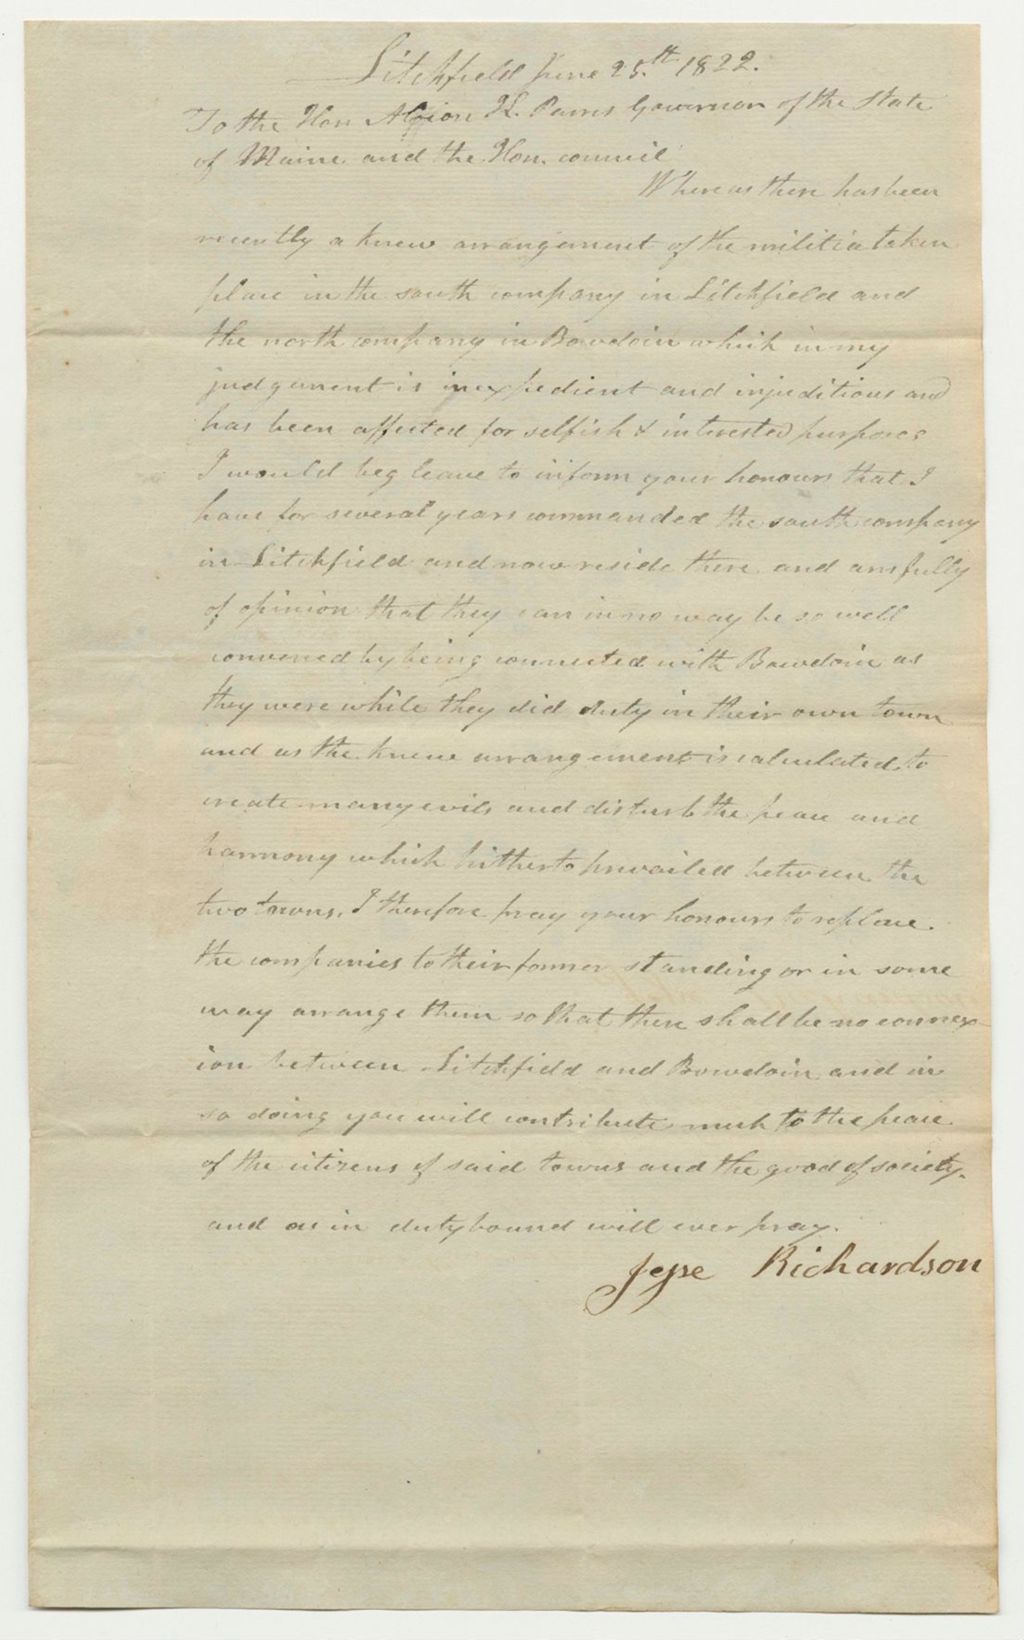 Litchfield June 25.th 1822.
To the Hon Albion K. Parris Governor of the State
of Maine and the Hon. council
Whereas there has been
recently a knew arrangement of the militia taken
place in the south company in Litchfield and
the north company in Bowdoin which in my
judgement is inexpedient and injuditious and
has been affected for selfish & interested purposes
I would beg leave to inform your honours that I
have for several years commanded the south company
in Litchfield and now reside there and am fully
of opinion that they can in no way be so well
convened by being connected with Bowdoin as
they were while they did duty in their own town
and as the knew arrangement is calculated to
create many evils and disturb the peace and
harmony which hitherto prevailed between the
two towns, I therefore pray your honours to replace
the companies to their former standing or in some
way arrange them so that there shall be no connex-
ion between Litchfield and Bowdoin and in
so doing you will contribute much to the peace
of the citizens of said towns and the good of society.
and as in duty bound will ever pray.
Jesse Richardson